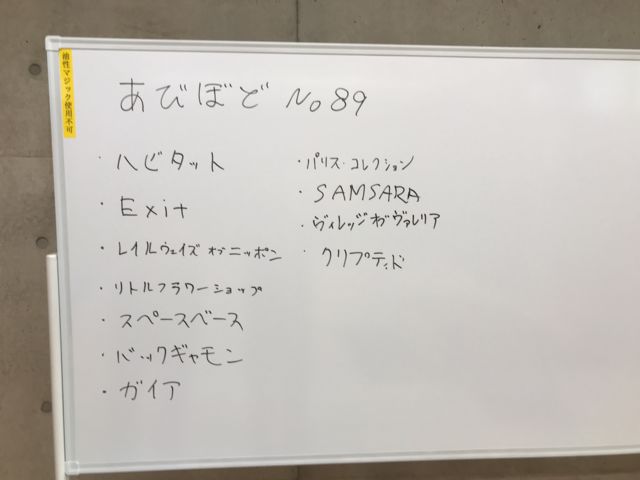 油性マジック使用不可
あびぼど No89
・ハビタット
・Exit
・レイルウェイズ オブ ニッポン
・リトルフラワーショップ
・スペースベース
・バックギャモン
・ガイア
・パリス・コレクション
・SAMSARA
・ヴィレッジオブヴァレリア
・クリプティド